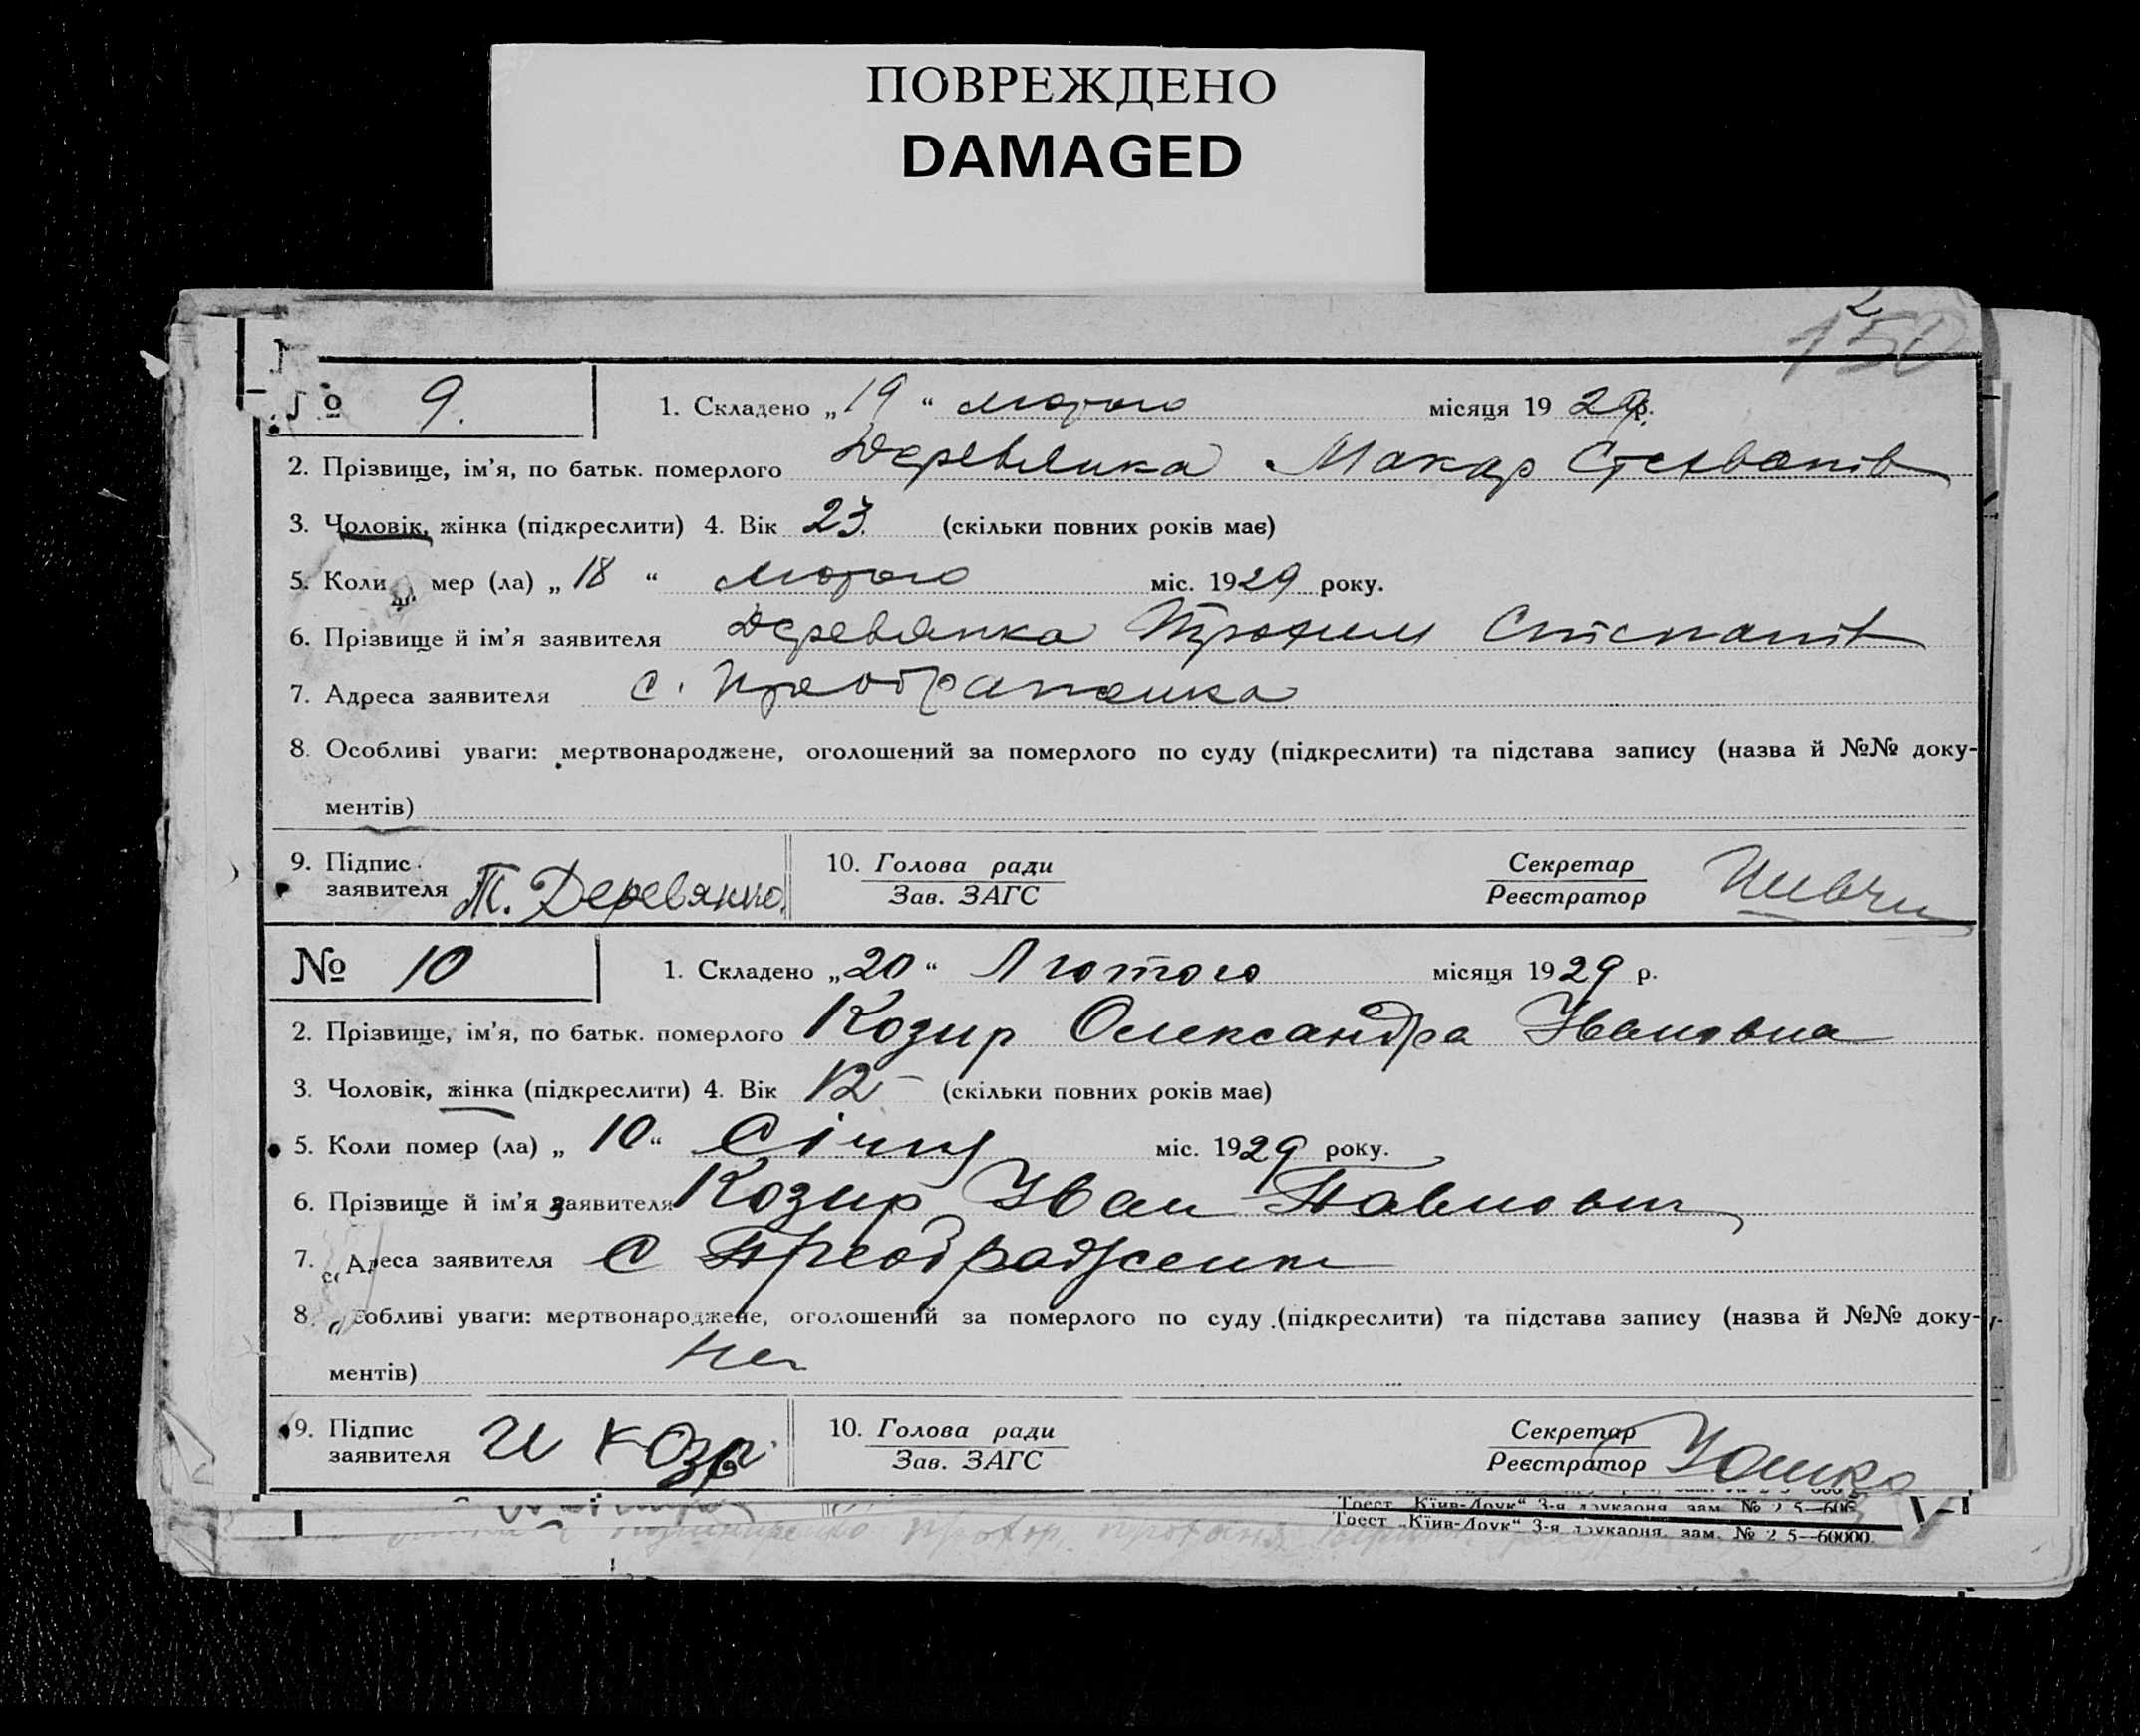 ПОВРЕЖДЕНО
DAMAGED
150
№ 9. 1. Складено „19“ лютого місяця 1929 р.
2. Прізвище, ім’я, по батьк. померлого Деревянка Макар Степанів
3. Чоловік, жінка (підкреслити) 4. Вік 23. (скільки повних років має)
5. Коли мер (ла) „18“ лютого міс. 1929 року.
6. Прізвище й ім’я заявителя Деревянка Трохим Степанів
7. Адреса заявителя с.
8. Особливі уваги: мертвонароджене, оголошений за померлого по суду (підкреслити) та підстава запису (назва й №№ доку-
ментів)
9. Підпис заявителя Т. Деревянко. 10. Голова ради Зав. ЗАГС Секретар Реєстратор
№ 10 1. Складено „20“ Лютого місяця 1929 р.
2. Прізвище, ім’я, по батьк. померлого Козир Олександра Івановна
3. Чоловік, жінка (підкреслити) 4. Вік 12 (скільки повних років має)
5. Коли помер (ла) „10“ Січня міс. 1929 року.
6. Прізвище й ім’я заявителя Козир Іван Павлович
7. Адреса заявителя С Преображенка
8. Особливі уваги: мертвонароджене, оголошений за померлого по суду (підкреслити) та підстава запису (назва й №№ доку-
ментів)
9. Підпис заявителя И Козир 10. Голова ради Зав. ЗАГС Секретар Реєстратор
Трест „Київ-Друк“ 3-я друкарня, зам. №
Трест „Київ-Друк“ 3-я друкарня, зам. № 2 5—60000.